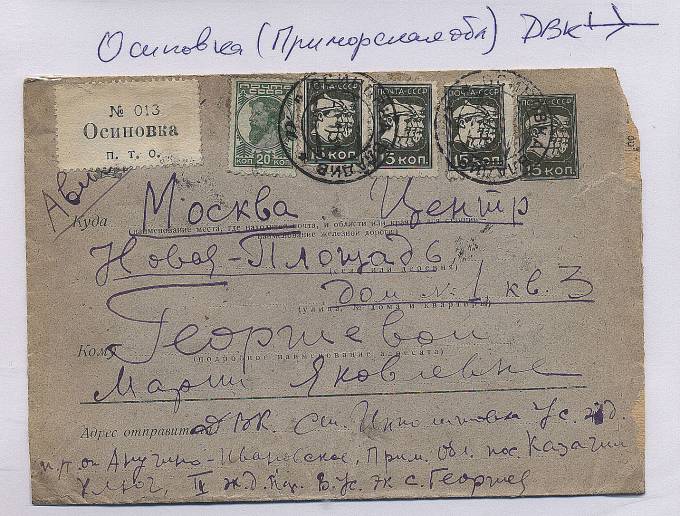 Осиновка (Приморская обл) ДВК
№ 013
Осиновка
п. т. о.
ПОЧТА СССР
ПОЧТА·СССР
ПОЧТА·СССР
20 КОП
15 КОП.
15 КОП.
15 КОП.
15 КОП
Авиа
Куда Москва Центр
(наименование места, где находится почта, и области или края
наименование железной дороги)
Новая-Площадь
(села или деревни)
Дом № 1, кв. 3
(улица, № дома и квартиры)
Кому Георгиевой
(подробное наименование адресата)
Марии Яковлевне
Адрес отправит ДВК. Ст. Ус. ж.д.
п.т. от Анучино-Ивановское, Прим. обл. пос. Казачий
Ключ, IV ж.д. с. Георгиев